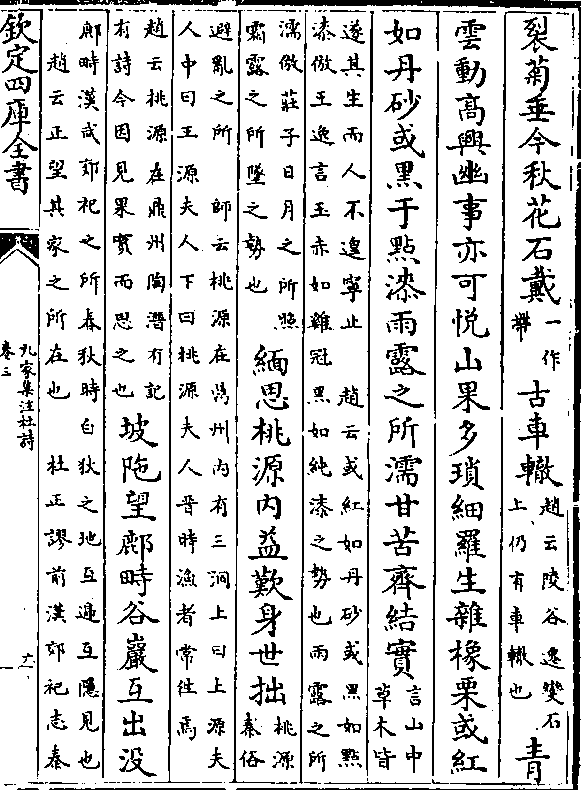 裂菊垂今秋花石戴
一作
帶
古車轍
趙云陵谷遷變石
上仍有車轍也
青
雲動高興幽事亦可悦山果多瑣細羅生雜橡栗或紅
如丹砂或黒于點漆雨露之所濡甘苦齊結實
言山中
草木皆
遂其生而人不遑寧止 趙云或紅如丹砂或黒如點
漆倣王逸言玉赤如雞冠黒如純漆之勢也雨露之所
濡倣莊子日月之所照
霜露之所墜之勢也
緬思桃源内益歎身世拙
桃源
秦俗
避亂之所 師云桃源在州内有三澗上曰上源夫
人中曰王源夫人下曰桃源夫人晉時漁者常往焉
趙云桃源在鼎州陶潛有記
有詩今因見果實而思之也
坡陁望鄜畤谷巖互出没
鄜時漢武郊祀之所春秋時白狄之地互遞互隠見也
趙云正望其家之所在也 杜正謬前漢郊祀志秦
欽定四庫全書
九家集注杜詩
卷三
十一